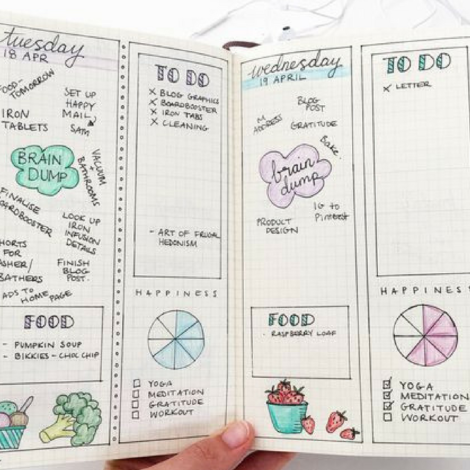 tuesday
18 APR
FOOD-
TOMORROW
SET UP
HAPPY
MAIL
SAM
IRON
TABLETS
BRAIN
DUMP
VACUUM
+
BATHROOMS
FINALISE
BOARDBOOSTER
LOOK UP
IRON
INFUSION
DETAILS
FOR
FINISH
BLOG
POST.
ADS TO
HOME PAGE
FOOD
- PUMPKIN SOUP
- BIKKIES - CHOC CHIP
TO DO
X BLOG GRAPHICS
X BOARDBOOSTER
X IRON TABS
X CLEANING
- ART OF FRUGAL
HEDONISM
HAPPINESS
YOGA
MEDITATION
GRATITUDE
WORKOUT
wednesday
19 APRIL
BLOG
POST
M
ADDRESS
GRATITUDE
BAKE
brain
dump
IG to
Pinterest
PRODUCT
DESIGN
FOOD
- RASPBERRY LOAF
TO DO
X LETTER
HAPPINES
YOGA
MEDITATION
GRATITUDE
WORKOUT